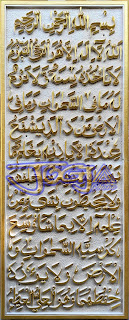 بسم الله الرحمن الرحيم
الله لا اله الا هو الحي القيوم
لا تأخذه سنة ولا نوم له
ما في السموات وما في
الارض من ذا الذي يشفع
عنده الا باذنه يعلم ما
بين ايديهم وما خلفهم
ولا يحيطون بشيء من
علمه الا بما شاء وسع
كرسيه السموات و
الارض ولا يؤده
حفظهما وهو العلي العظيم